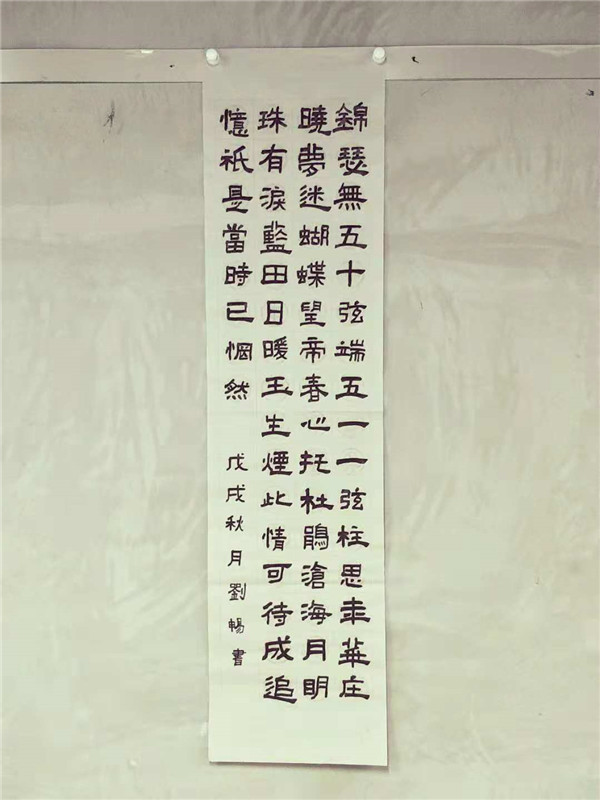 錦瑟無五十弦端五一一弦柱思年華庄
曉夢迷蝴蝶望帝春心托杜鵑滄海月明
珠有淚藍田日暖玉生煙此情可待成追
憶祇是當時已惘然 戊戌秋月劉暢書